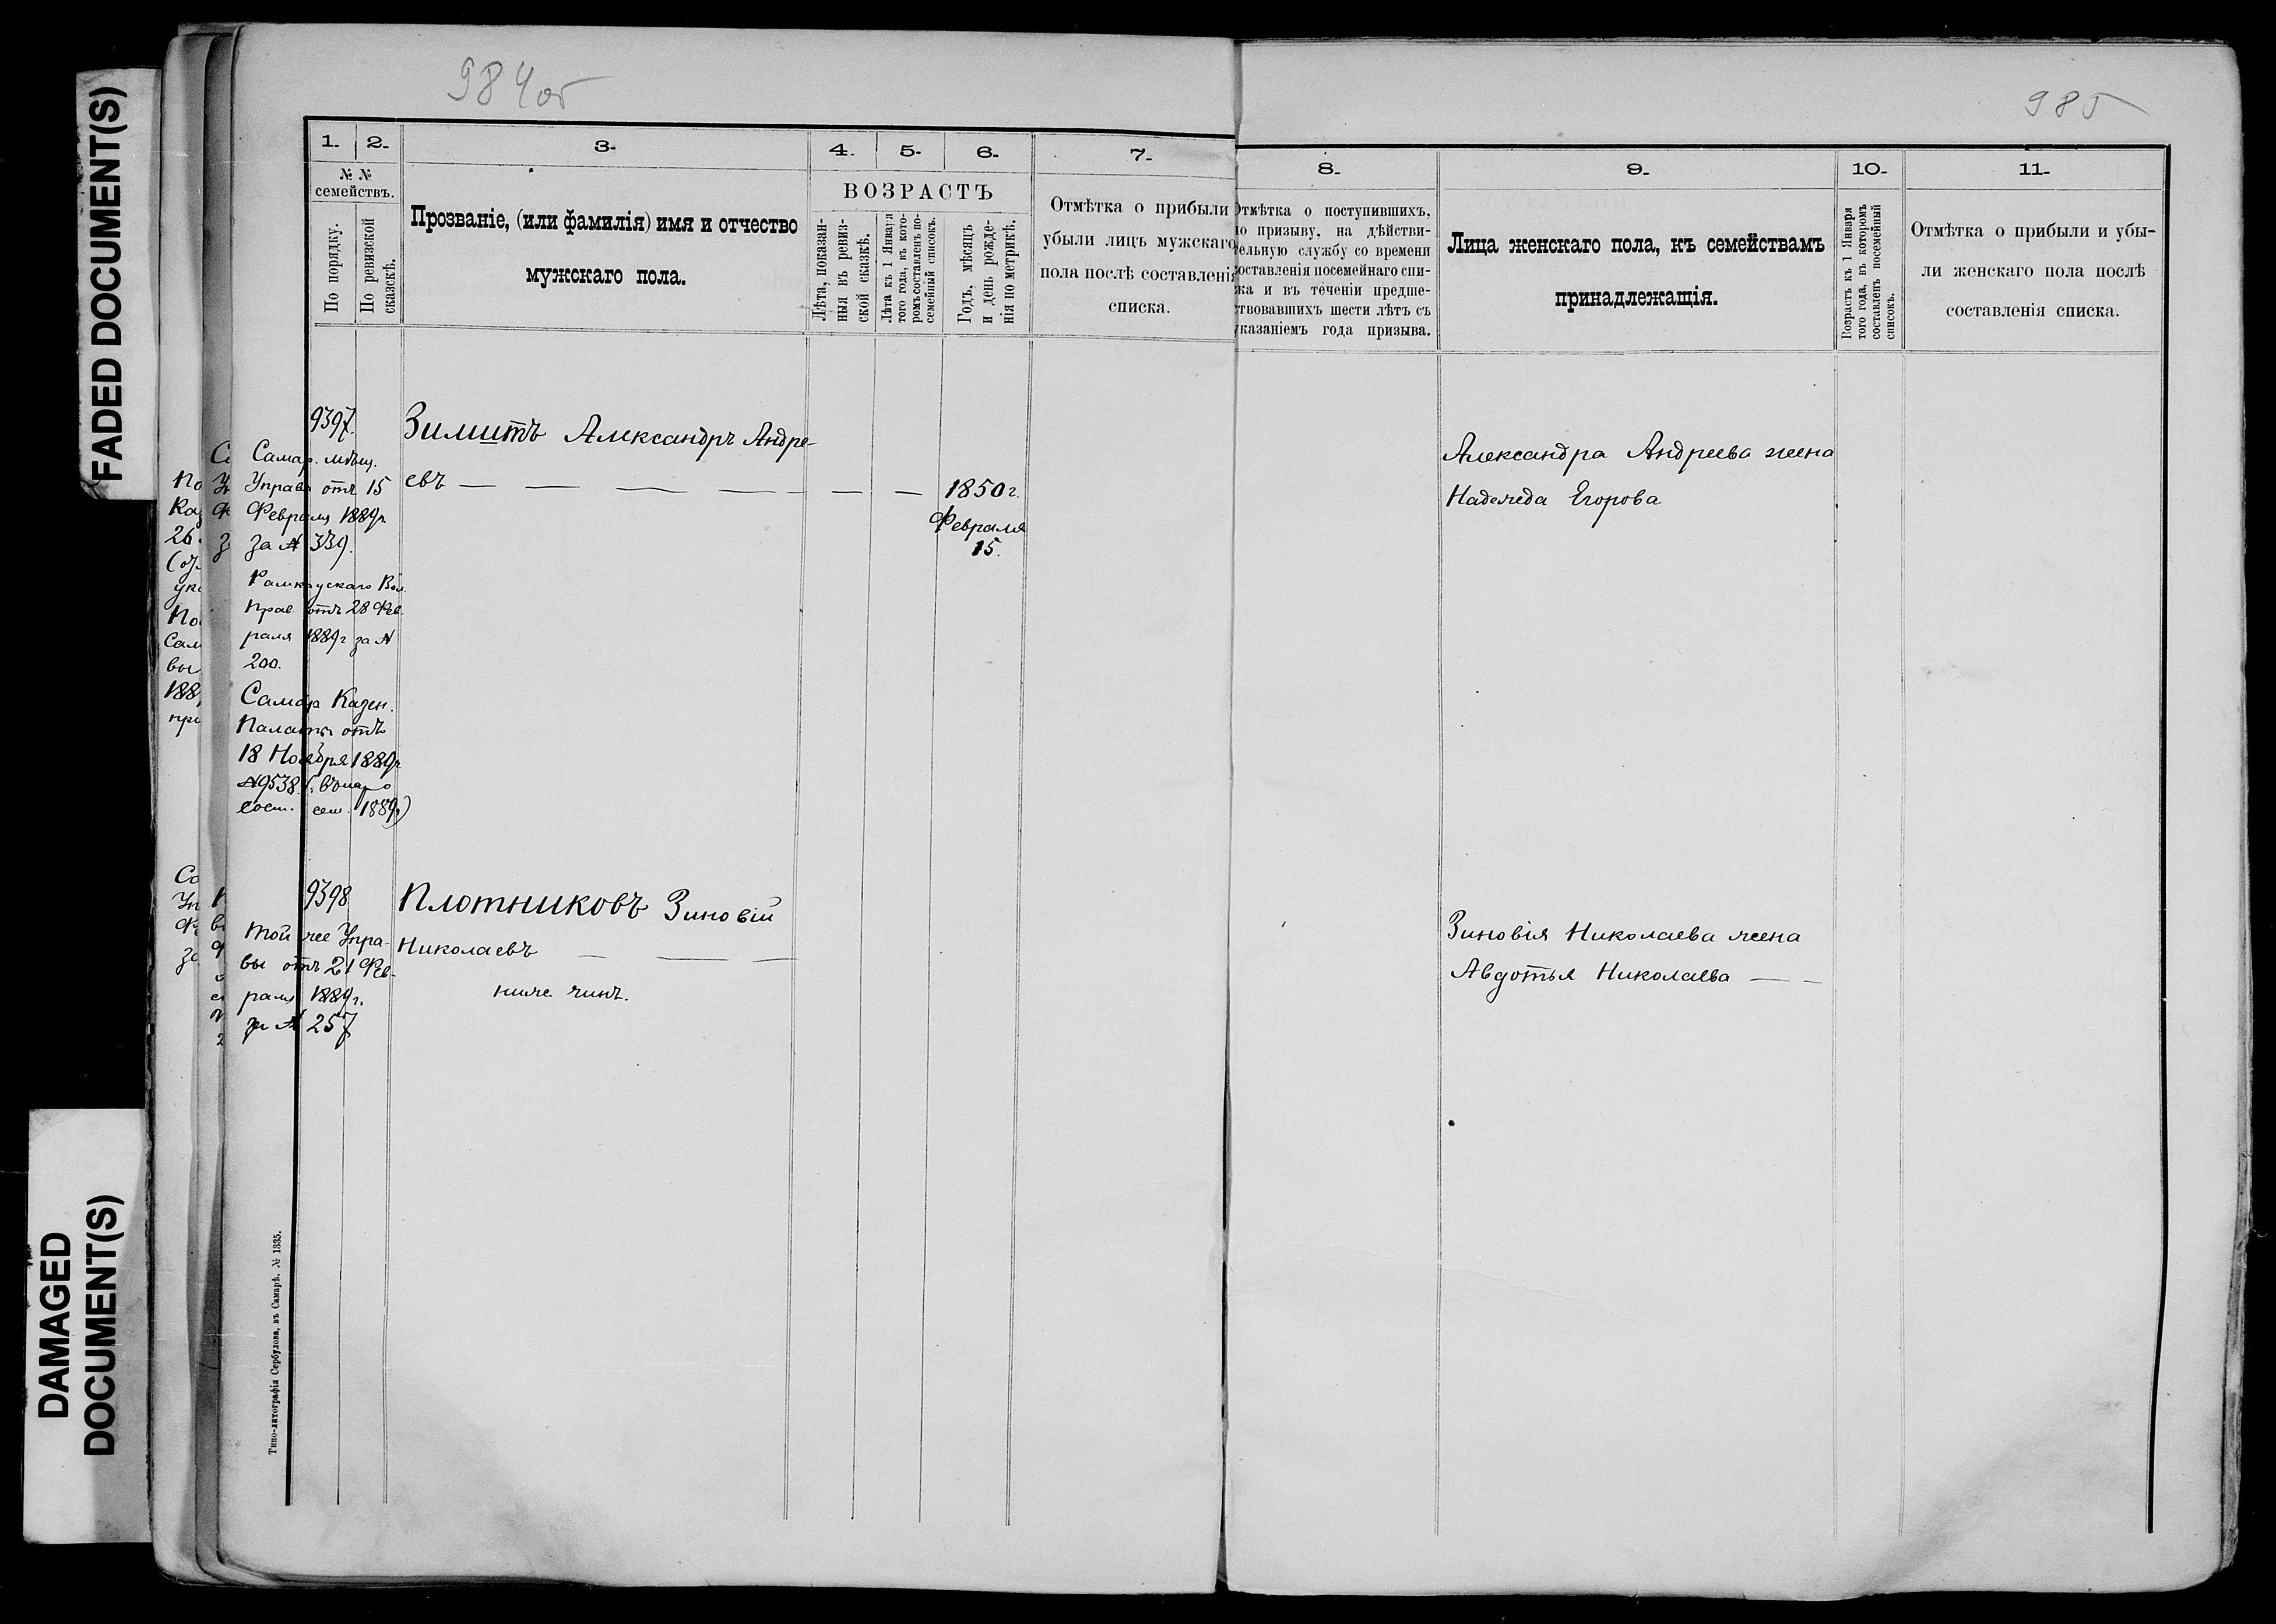 FADED DOCUMENT(S)
DAMAGED
DOCUMENT(S)
984об
1.
2.
3.
4.
5.
6.
7.
№ №
семействъ.
По порядку.
По ревизской
сказскѣ.
Прозваніе, (или фамилія) имя и отчество
мужскаго пола.
ВОЗРАСТЪ
Лѣта, показан-
ныя въ ревиз-
ской сказкѣ.
Лѣта къ 1 Января
того года, въ кото-
ромъ составленъ по-
семейный списокъ.
Годъ, мѣсяцъ
и день рожде-
нія по метрикѣ.
Отмѣтка о прибыли
убыли лицъ мужскаго
пола послѣ составленія
списка.
9397.
Самар. мѣщ.
Управы отъ 15
Февраля 1889г
за № 339.
Вол.
Прав отъ 28 Фев
раля 1889г за №
200.
Самар Казен.
Палаты отъ
18 Ноября 1889г
№9538.
1889)
Зимитъ Александръ Андре-
евъ — — — — — — —
1850г.
Февраля
15.
9398
Той же Упра-
вы отъ 21 Фев-
раля 1889г.
за № 257
Плотниковъ Зиновій
Николаевъ — — —
ниже чинъ.
Типо-литографія Сербулова, въ Самарѣ. № 1335.
985
8.
9.
10.
11.
Отмѣтка о поступившихъ,
по призыву, на дѣйстви-
тельную службу со времени
составленія посемейнаго спи-
ска и въ теченіи предше-
ствовавшихъ шести лѣтъ съ
указаніемъ года призыва.
Лица женскаго пола, къ семействамъ
принадлежащія.
Возрастъ къ 1 Января
того года, въ которомъ
составленъ посемейный
списокъ.
Отмѣтка о прибыли и убы-
ли женскаго пола послѣ
составленія списка.
Александра Андреева жена
Надежда Егорова
Зиновія Николаева жена
Авдотья Николаева — —